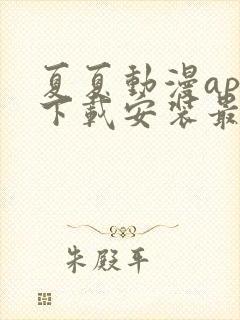 夏夏動漫ap
下載安裝最
朱殿平